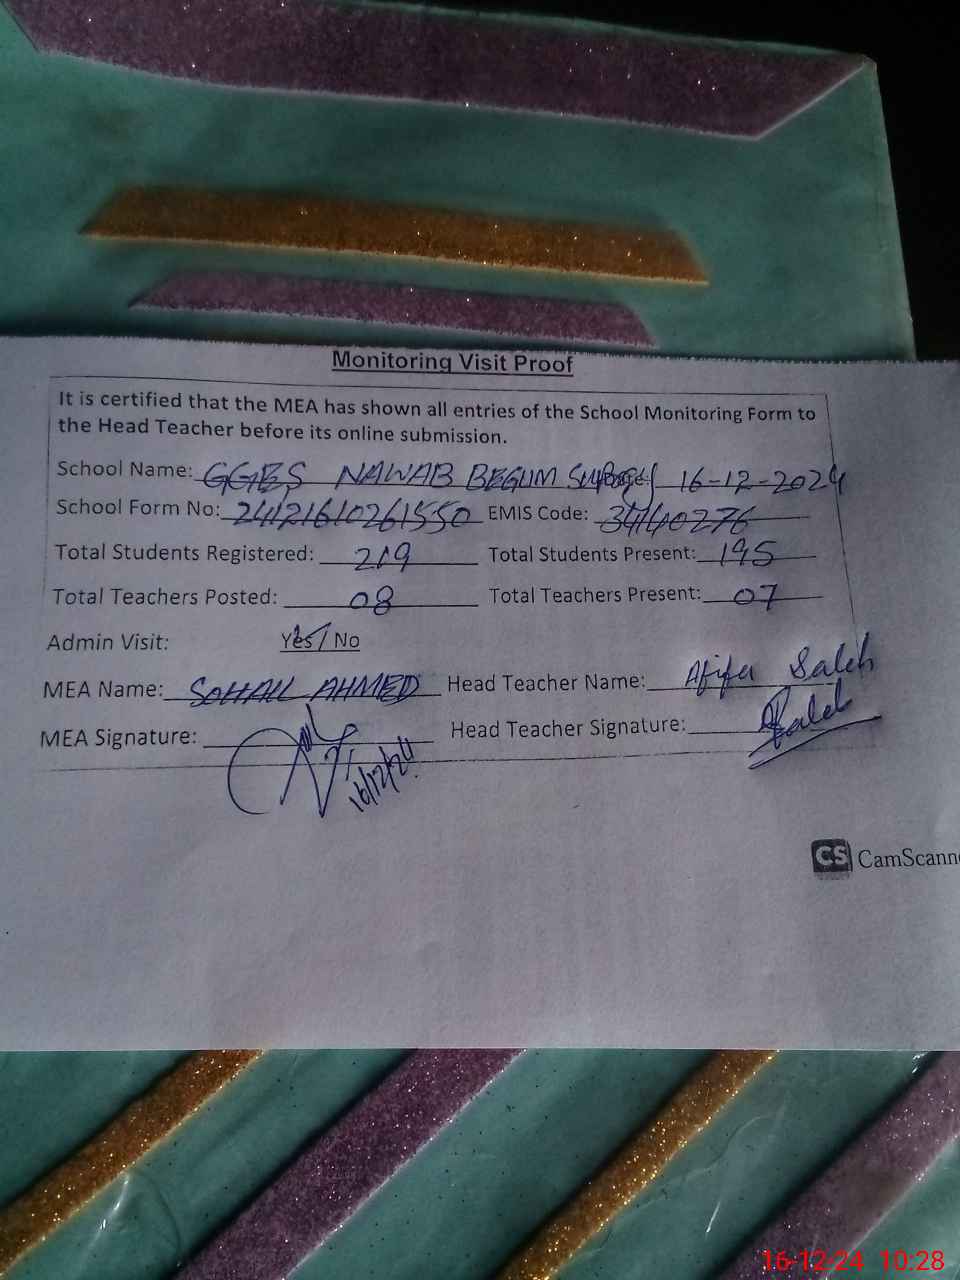 Monitoring Visit Proof
It is certified that the MEA has shown all entries of the School Monitoring Form to
the Head Teacher before its online submission.
School Name: GGES NAWAB BEGUM 16-12-2024
School Form No: 24121610261550 EMIS Code: 34140276
Total Students Registered: 219 Total Students Present: 195
Total Teachers Posted: 08 Total Teachers Present: 07
Admin Visit: Yes / No
MEA Name: SOHAIL AHMED Head Teacher Name: Afifa Saleh
MEA Signature: 16/12/24 Head Teacher Signature: Saleh
CS CamScanne
16-12-24 10:28